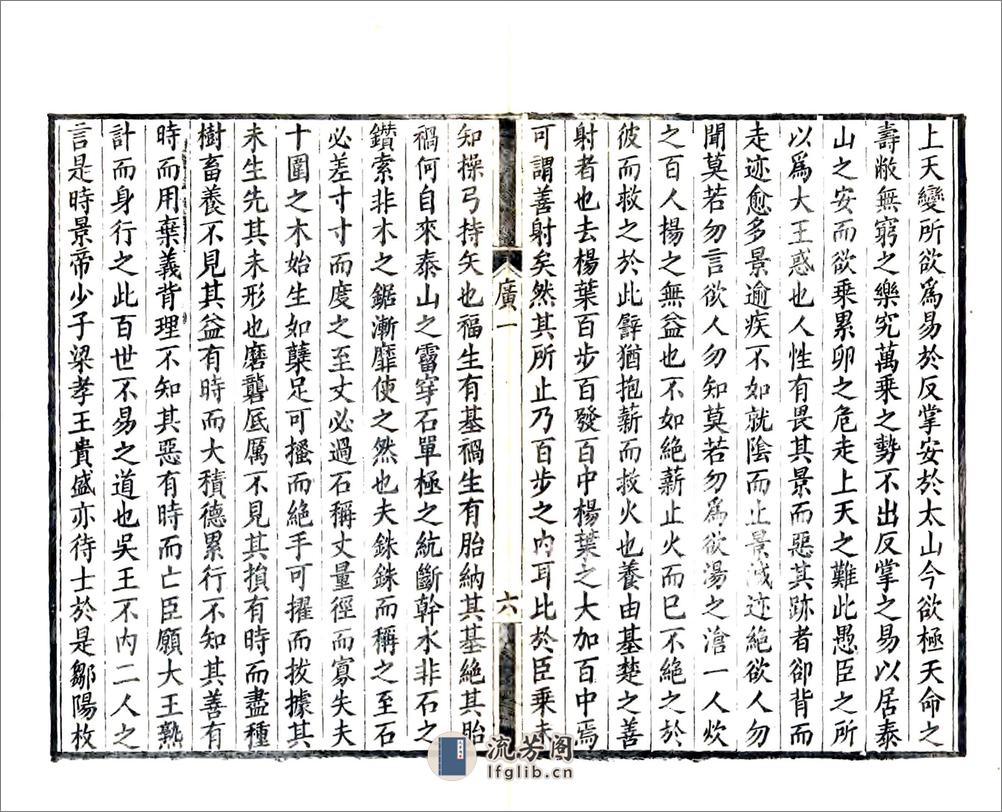 上天變所欲爲易於反掌安於太山今欲極天命之
壽敝無窮之樂究萬乘之勢不出反掌之易以居泰
山之安而欲乘累卵之危走上天之難此愚臣之所
以爲大王惑也人性有畏其景而惡其跡者卻背而
走迹愈多景逾疾不如就陰而止景滅迹絶欲人勿
聞莫若勿言欲人勿知莫若勿爲欲湯之滄一人炊
之百人楊之無益也不如絶薪止火而已不絶之於
彼而救之於此譬猶抱薪而救火也養由基楚之善
射者也去楊葉百步百發百中楊葉之大加百中焉
可謂善射矣然其所止乃百步之内耳比於臣乘未
廣一
六
知操弓持矢也福生有基禍生有胎納其基絶其胎
禍何自來泰山之霤穿石單極之統斷幹水非石之
鑽索非木之鋸漸靡使之然也夫銖銖而稱之至石
必差寸寸而度之至丈必過石稱丈量徑而寡失夫
十圍之木始生如蘖足可搔而絶手可擢而拔據其
未生先其未形也磨礱底厲不見其損有時而盡種
樹畜養不見其益有時而大積德累行不知其善有
時而用棄義背理不知其惡有時而亡臣願大王熟
計而身行之此百世不易之道也吳王不内二人之
言是時景帝少子梁孝王貴盛亦待士於是鄒陽枚
流芳阁
lfglib.cn